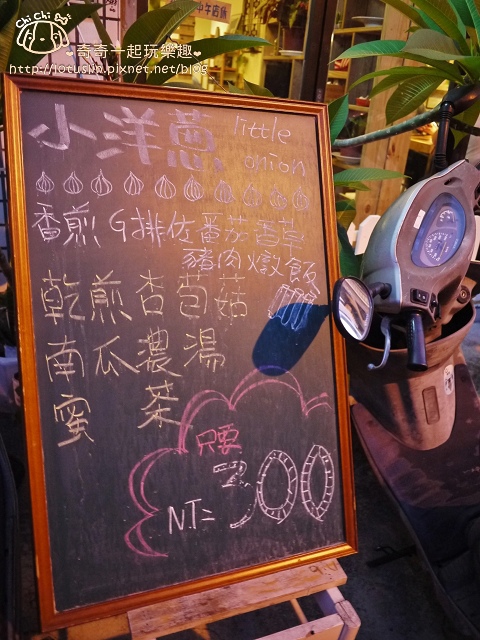 Chi Chi
奇奇一起玩樂趣
http://lotuslin.pixnet.net/blog
小洋蔥 little onion
香煎G排佐番茄香草
豬肉燉飯
乾煎杏苞菇
南瓜濃湯
蜜 茶
只要
NT= 300